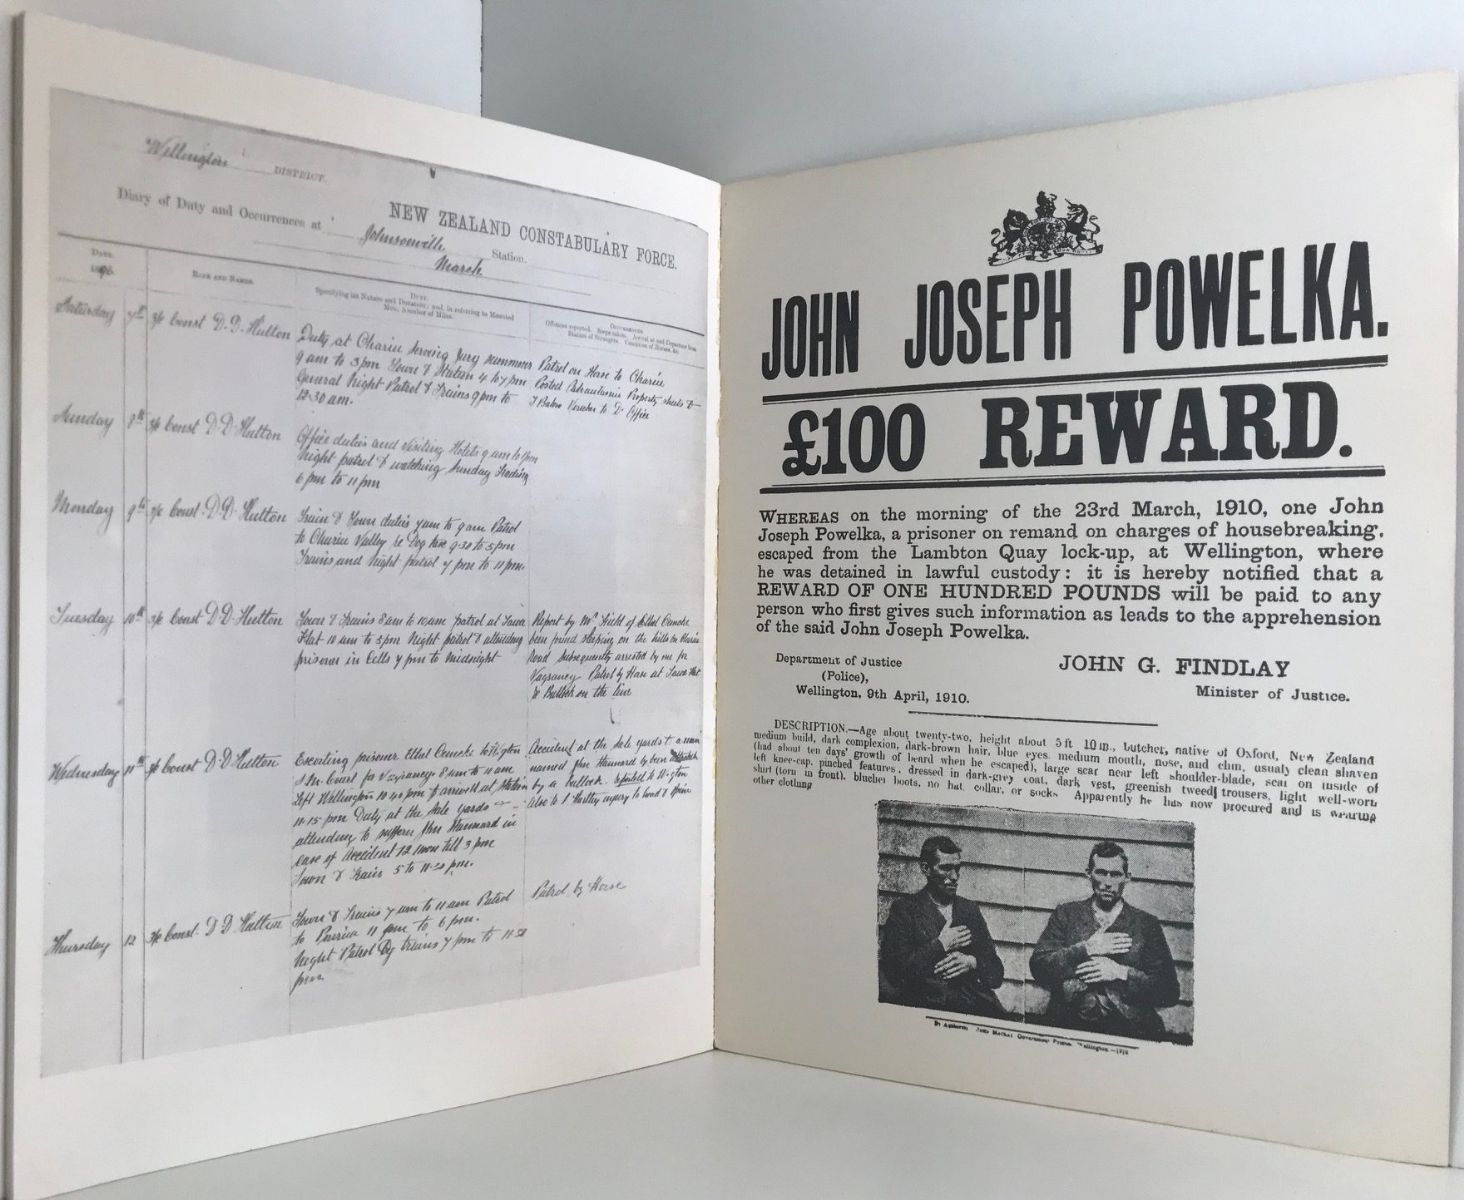 Wellington DISTRICT.
NEW ZEALAND CONSTABULARY FORCE.
Diary of Duty and Occurrences at Johnsonville Station.
March
DATE. RANK AND NAMES. DUTY. OCCURRENCES
Saturday 7th 3/c Const D. D. Hutton
Duty at Charin serving Jury summons
9 am to 3 pm Town & Station 4 to 7 pm
General Night Patrol & Trains 9 pm to
12-30 am.
Patrol on Horse to Charin
Posted Property sheets &
Office
Sunday 8th 3/c Const D. D. Hutton
Office duties and visiting Hotels 9 am to 1 pm
Night patrol & watching Sunday Trading
6 pm to 11 pm
Monday 9th 3/c Const. D. D. Hutton
Train & Town duties 7 am to 9 am Patrol
to Charin Valley re Dog tax 9-30 to 5 pm
Trains and Night patrol 7 pm to 11 pm.
Tuesday 10th 3/c Const D. D. Hutton
Town & Trains 8 am to 10 am patrol at Tawa
Flat 10 am to 5 pm Night patrol & attending
prisoner in Cells 7 pm to Midnight
Report by Mr Field of
been found sleeping on the hills on
Road subsequently arrested by me for
Vagrancy Patrol by Horse at Tawa Flat
re Bullock on the line
Wednesday 11th 3/c Const D. D. Hutton
Escorting prisoner to
S.M. Court for Vagrancy 8 am to 11 am
Left Wellington 10 40 pm & arrived at Station
11-15 pm Duty at the Sale yards &
attending to sufferer Jno Hannard in
case of Accident 12 noon till 3 pm
Town & Trains 5 to 11-30 pm.
Accident at the Sale yards to a man
named Jno Hannard by been
by a bullock reported to
also to injury to head & spine
Thursday 12 3/c Const. D. D. Hutton
Town & Trains 7 am to 11 am Patrol
to Porirua 11 pm to 6 pm.
Night Patrol & trains 7 pm to 11-30
pm
Patrol by Horse
JOHN JOSEPH POWELKA.
£100 REWARD.
WHEREAS on the morning of the 23rd March, 1910, one John
Joseph Powelka, a prisoner on remand on charges of housebreaking,
escaped from the Lambton Quay lock-up, at Wellington, where
he was detained in lawful custody: it is hereby notified that a
REWARD OF ONE HUNDRED POUNDS will be paid to any
person who first gives such information as leads to the apprehension
of the said John Joseph Powelka.
Department of Justice
(Police),
Wellington, 9th April, 1910.
JOHN G. FINDLAY
Minister of Justice.
DESCRIPTION.—Age about twenty-two, height about 5 ft 10 in., butcher, native of Oxford, New Zealand
medium build, dark complexion, dark-brown hair, blue eyes, medium mouth, nose, and chin, usually clean shaven
(had about ten days' growth of beard when he escaped), large scar near left shoulder-blade, scar on inside of
left knee-cap, pinched features, dressed in dark-grey coat, dark vest, greenish tweed trousers, light well-worn
shirt (torn in front), blucher boots, no hat, collar, or socks. Apparently he has now procured and is wearing
other clothing
By Authority: John Mackay, Government Printer, Wellington.—1910